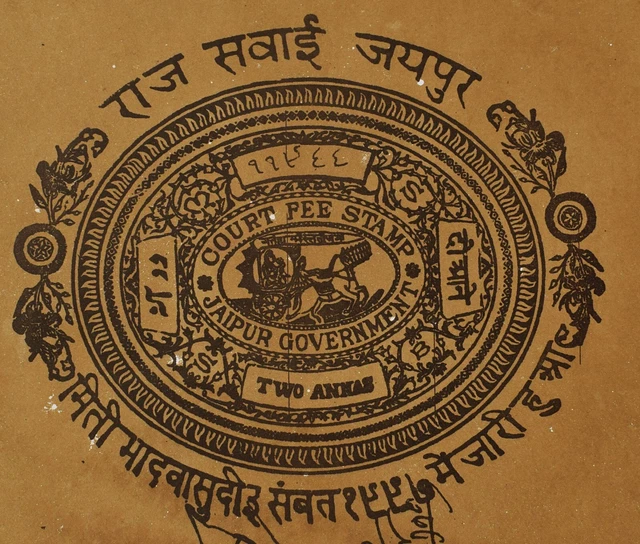 राज सवाई जयपुर
११९६६
COURT FEE STAMP
दो आने
JAIPUR GOVERNMENT
TWO ANNAS
मिती भादवासुदी३ संवत १९९७ में जारी हुआ